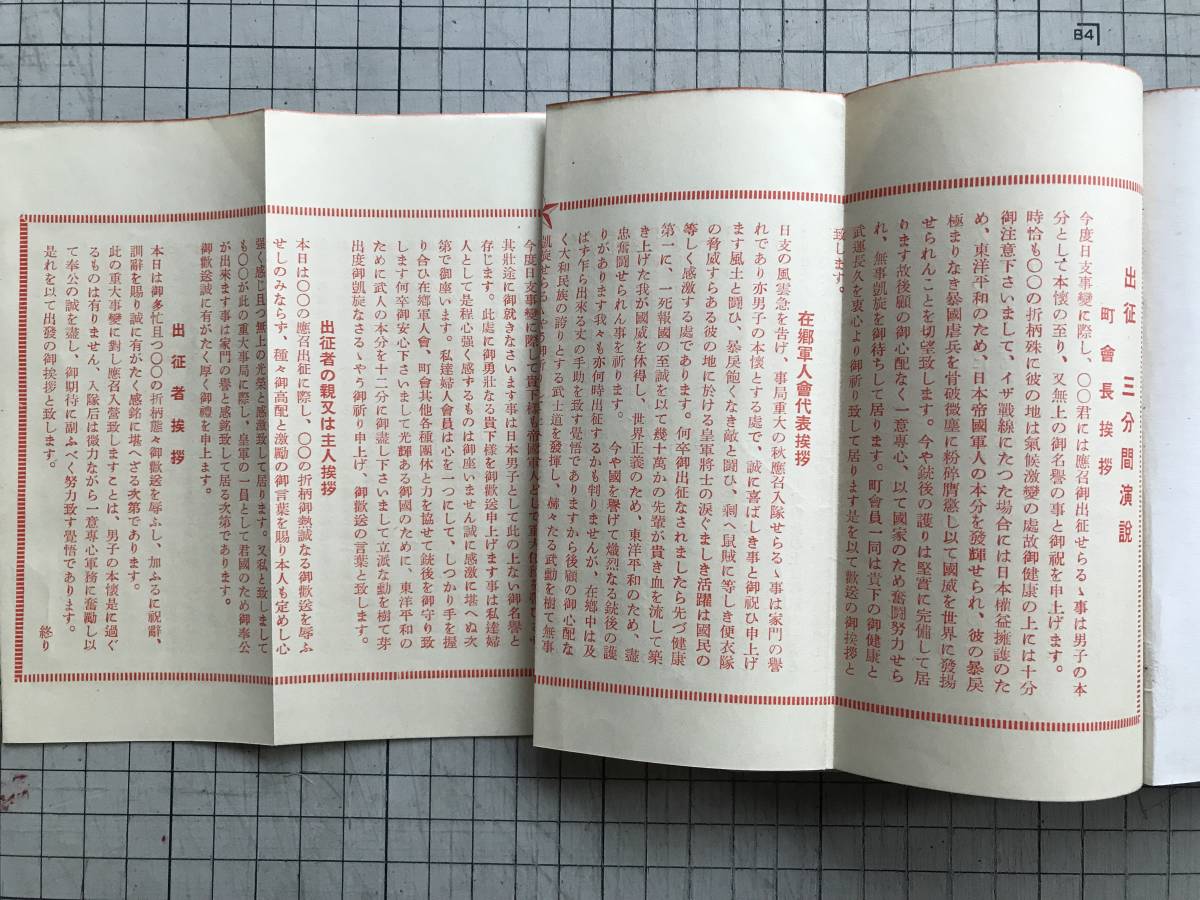 出征 三分間演說
町會長挨拶
今度日支事變に際し、〇〇君には應召御出征せらるゝ事は男子の本
分として本懷の至り、又無上の御名譽の事と御祝を申上げます。
時恰も〇〇の折柄殊に彼の地は氣候激變の處故御健康の上には十分
御注意下さいまして、イザ戰線にたつた場合には日本權益擁護のた
め、東洋平和のため、日本帝國軍人の本分を發輝せられ、彼の暴戾
極まりなき暴國虐兵を骨破微塵に粉碎膺懲し以て國威を世界に發揚
せられんことを切望致します。今や銃後の護りは堅實に完備して居
ります故後顧の御心配なく一意專心、以て國家のため奮闘努力せら
れ、無事凱旋を御待ちして居ります。町會員一同は貴下の御健康と
武運長久を衷心より御祈り致して居りますり是を以て歡送の御挨拶と
致します。
在鄕軍人會代表挨拶
日支の風雲急を告げ、事局重大の秋應召入隊せらるゝ事は家門の譽
れであり亦男子の本懷とする處で、誠に喜ばしき事と御祝ひ申上げ
ます風土と鬪ひ、暴戾飽くなき敵と鬪ひ、剩へ鼠賊に等しき便衣隊
の脅威すらある彼の地に於ける皇軍將士の淚ぐましき活躍は國民の
等しく感激する處であります。何卒御出征なされましたら先づ健康
第一に、一死報國の至誠を以て幾十萬かの先輩が貴き血を流して築
き上げた我が國威を休得し、世界正義のため、東洋平和のため、盡
忠奮闘せられん事を祈ります。 今や國を擧げて熾烈なる銃後の護
りがあります我々も亦何時出征するかも判りませんが、在鄕中は及
ばず乍ら出來る丈の手助を致す覺悟でありますから後顧の御心配な
く大和民族の誇りとする武士道を發揮し、赫々たる武動を樹て無事
凱旋せら
今度日支事變に際して貴
其壯途に御就きなさいます事は日本男子として此の上ない御名譽と
存じます。此處に御勇壯なる貴下樣を御歡送申上げます事は私達婦
人として是程心强く感ずるものは御座いません誠に感激に堪へぬ次
第で御座います。私達婦人會員は心を一つにして、しつかり手を握
り合ひ在鄕軍人會、町會其他各種團休と力を協せて銃後を御守り致
します何卒御安心下さいまして光輝ある御國のために、東洋平和の
ために武人の本分を十二分に御盡し下さいまして立派な動を樹て芽
出度御凱旋なさるゝやう御祈り申上げ、御歡送の言葉と致します。
出征者の親又は主人挨拶
本日は〇〇の應召出征に際し、〇〇の折柄御熱誠なる御歡送を辱ふ
せしのみならず、種々御高配と激勵の御言葉を賜り本人も定めし心
强く感じ且つ無上の光榮と感激致して居ります。又私と致しまして
も〇〇が此の重大事局に際し、皇軍の一員として君國のため御奉公
が出來ます事は家門の譽と感銘致して居る次第であります。
御歡送誠に有がたく厚く御禮を申上ます。
出征者挨拶
本日は御多忙且つ〇〇の折柄態々御歡送を辱ふし、加ふるに祝辭、
訓辭を賜り誠に有がたく感銘に堪へざる次第であります。
此の重大事變に對し應召入營致しますことは、男子の本懷是に過ぐ
るものは有りません、入隊后は微力ながら一意專心軍務に奮勵し以
て奉公の誠を盡し、御期待に副ふべく努力致す覺悟であります。
是れを以て出發の御挨拶と致します。 終り
B4